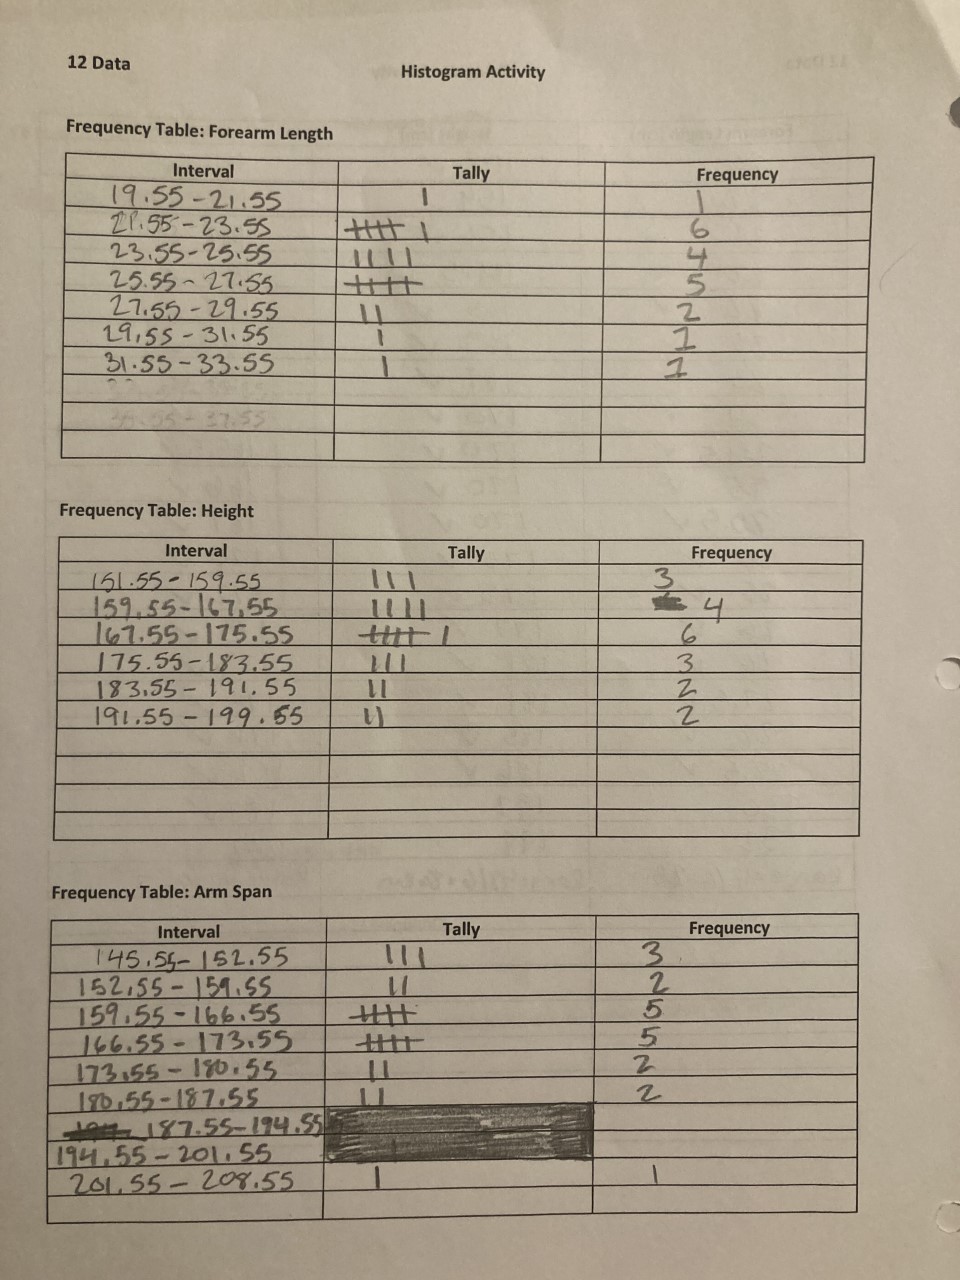 12 Data
Histogram Activity
Frequency Table: Forearm Length
Interval Tally Frequency
19.55-21.55 | 1
21.55-23.55 |||| | 6
23.55-25.55 |||| 4
25.55-27.55 |||| 5
27.55-29.55 || 2
29.55-31.55 | 1
31.55-33.55 | 1
Frequency Table: Height
Interval Tally Frequency
151.55-159.55 ||| 3
159.55-167.55 |||| 4
167.55-175.55 |||| | 6
175.55-183.55 ||| 3
183.55-191.55 || 2
191.55-199.55 || 2
Frequency Table: Arm Span
Interval Tally Frequency
145.55-152.55 ||| 3
152.55-159.55 || 2
159.55-166.55 |||| 5
166.55-173.55 |||| 5
173.55-180.55 || 2
180.55-187.55 || 2
187.55-194.55
194.55-201.55
201.55-208.55 | 1